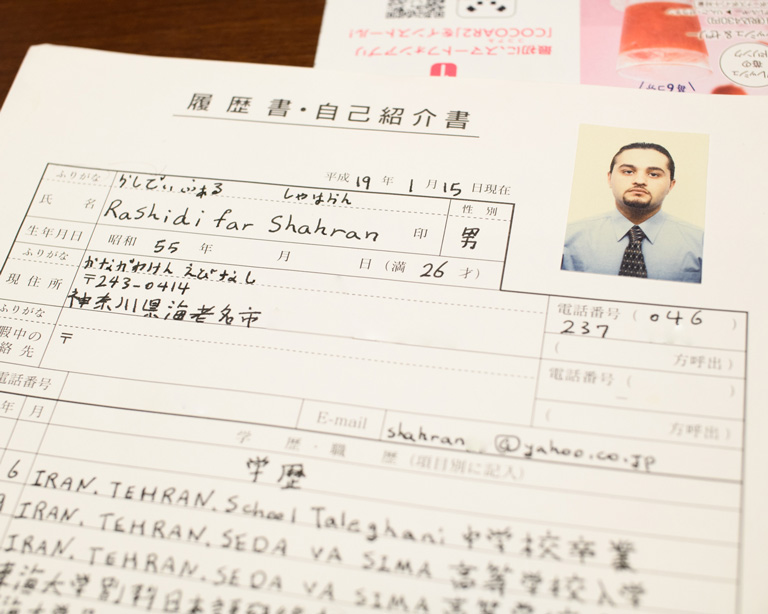 最初に、スマートフォンアプリ
「COCOAR2」をインストール!
履歴書・自己紹介書
平成 19 年 1 月 15 日現在
ふりがな らしでぃふぁる しゃはらん
氏 名 Rashidi far Shahran 印
性 別
男
生年月日 昭和 55 年 月 日 (満 26 才)
ふりがな かながわけん えびなし
現住所 〒243-0414
神奈川県海老名市
電話番号 ( 046 )
237
( 方呼出)
ふりがな
暇中の
絡先 〒
電話番号 ( )
( 方呼出)
電話番号
E-mail shahran @yahoo.co.jp
年 月 学 歴・職 歴 (項目別に記入)
学歴
6 IRAN. TEHRAN. School Taleghani 中学校卒業
9 IRAN. TEHRAN. SEDA VA SIMA 高等学校入学
IRAN. TEHRAN. SEDA VA SIMA 高等学校
東海大学別科日本語